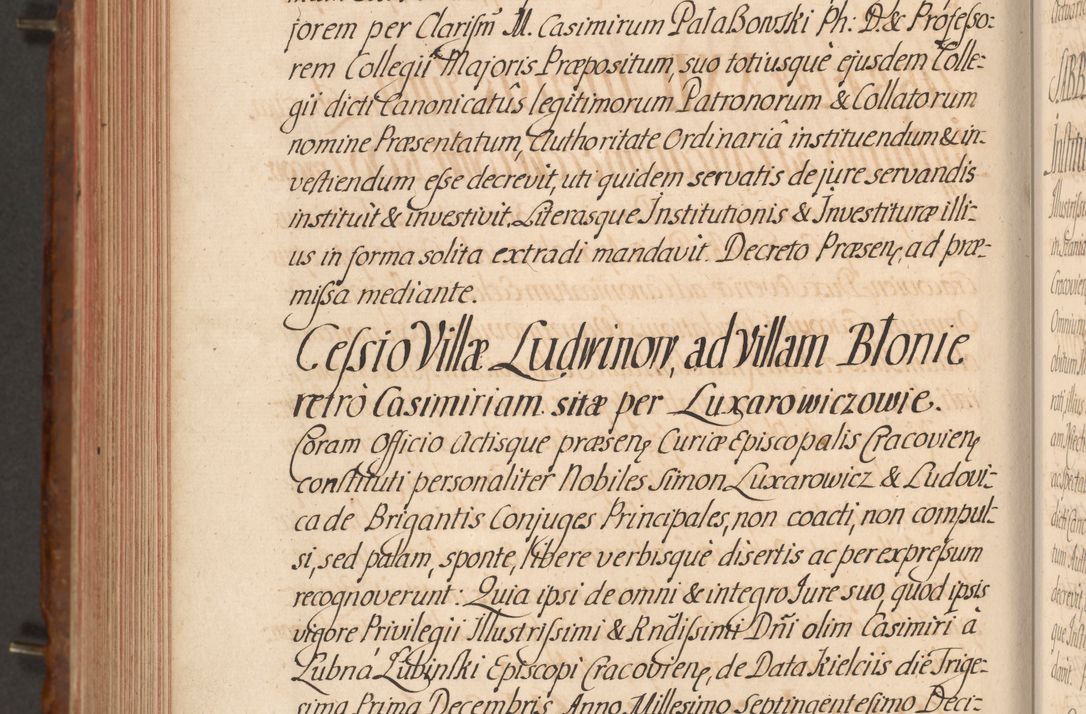 jorem per Clarissm̃ M. Casimirum Pałaßowski Ph: D. & Professo-
rem Collegii Majoris Præpositum, suo totiusque ejusdem Colle-
gii dicti Canonicatûs legitimorum Patronorum & Collatorum
nomine Præsentatum, Authoritate Ordinariâ instituendum & in-
vestiendum esse decrevit, uti quidem servatis de jure servandis
instituit & investivit, Literasque Institutionis & Investituræ illi-
us in forma solita extradi mandavit. Decreto Præsenę, ad præ-
missa mediante.
Cessio Villæ Ludwinow, ad Villam Błonie
retrò Casimiriam sitæ per Luxarowiczowie.
Coram Officio Actisque præsenę Curiæ Episcopalis Cracovienę
constituti personaliter Nobiles Simon Luxarowicz & Ludovi-
ca de Brigantis Conjuges Principales, non coacti, non compul-
si, sed palam, sponte, libere verbisquè disertis ac per expressum
recognoverunt: Quia ipsi de omni & integro Jure suo, quod ipsis
vigore Privilegii Illustrissimi & Rnđissimi Dñi olim Casimiri à
Lubná Łubinski Episcopi Cracovienę, de Data Kielciis die Trige-
sima Prima Decembris Anno Millesimo Septingentesimo Deci-
Illustriss
Cracovien
Omnium